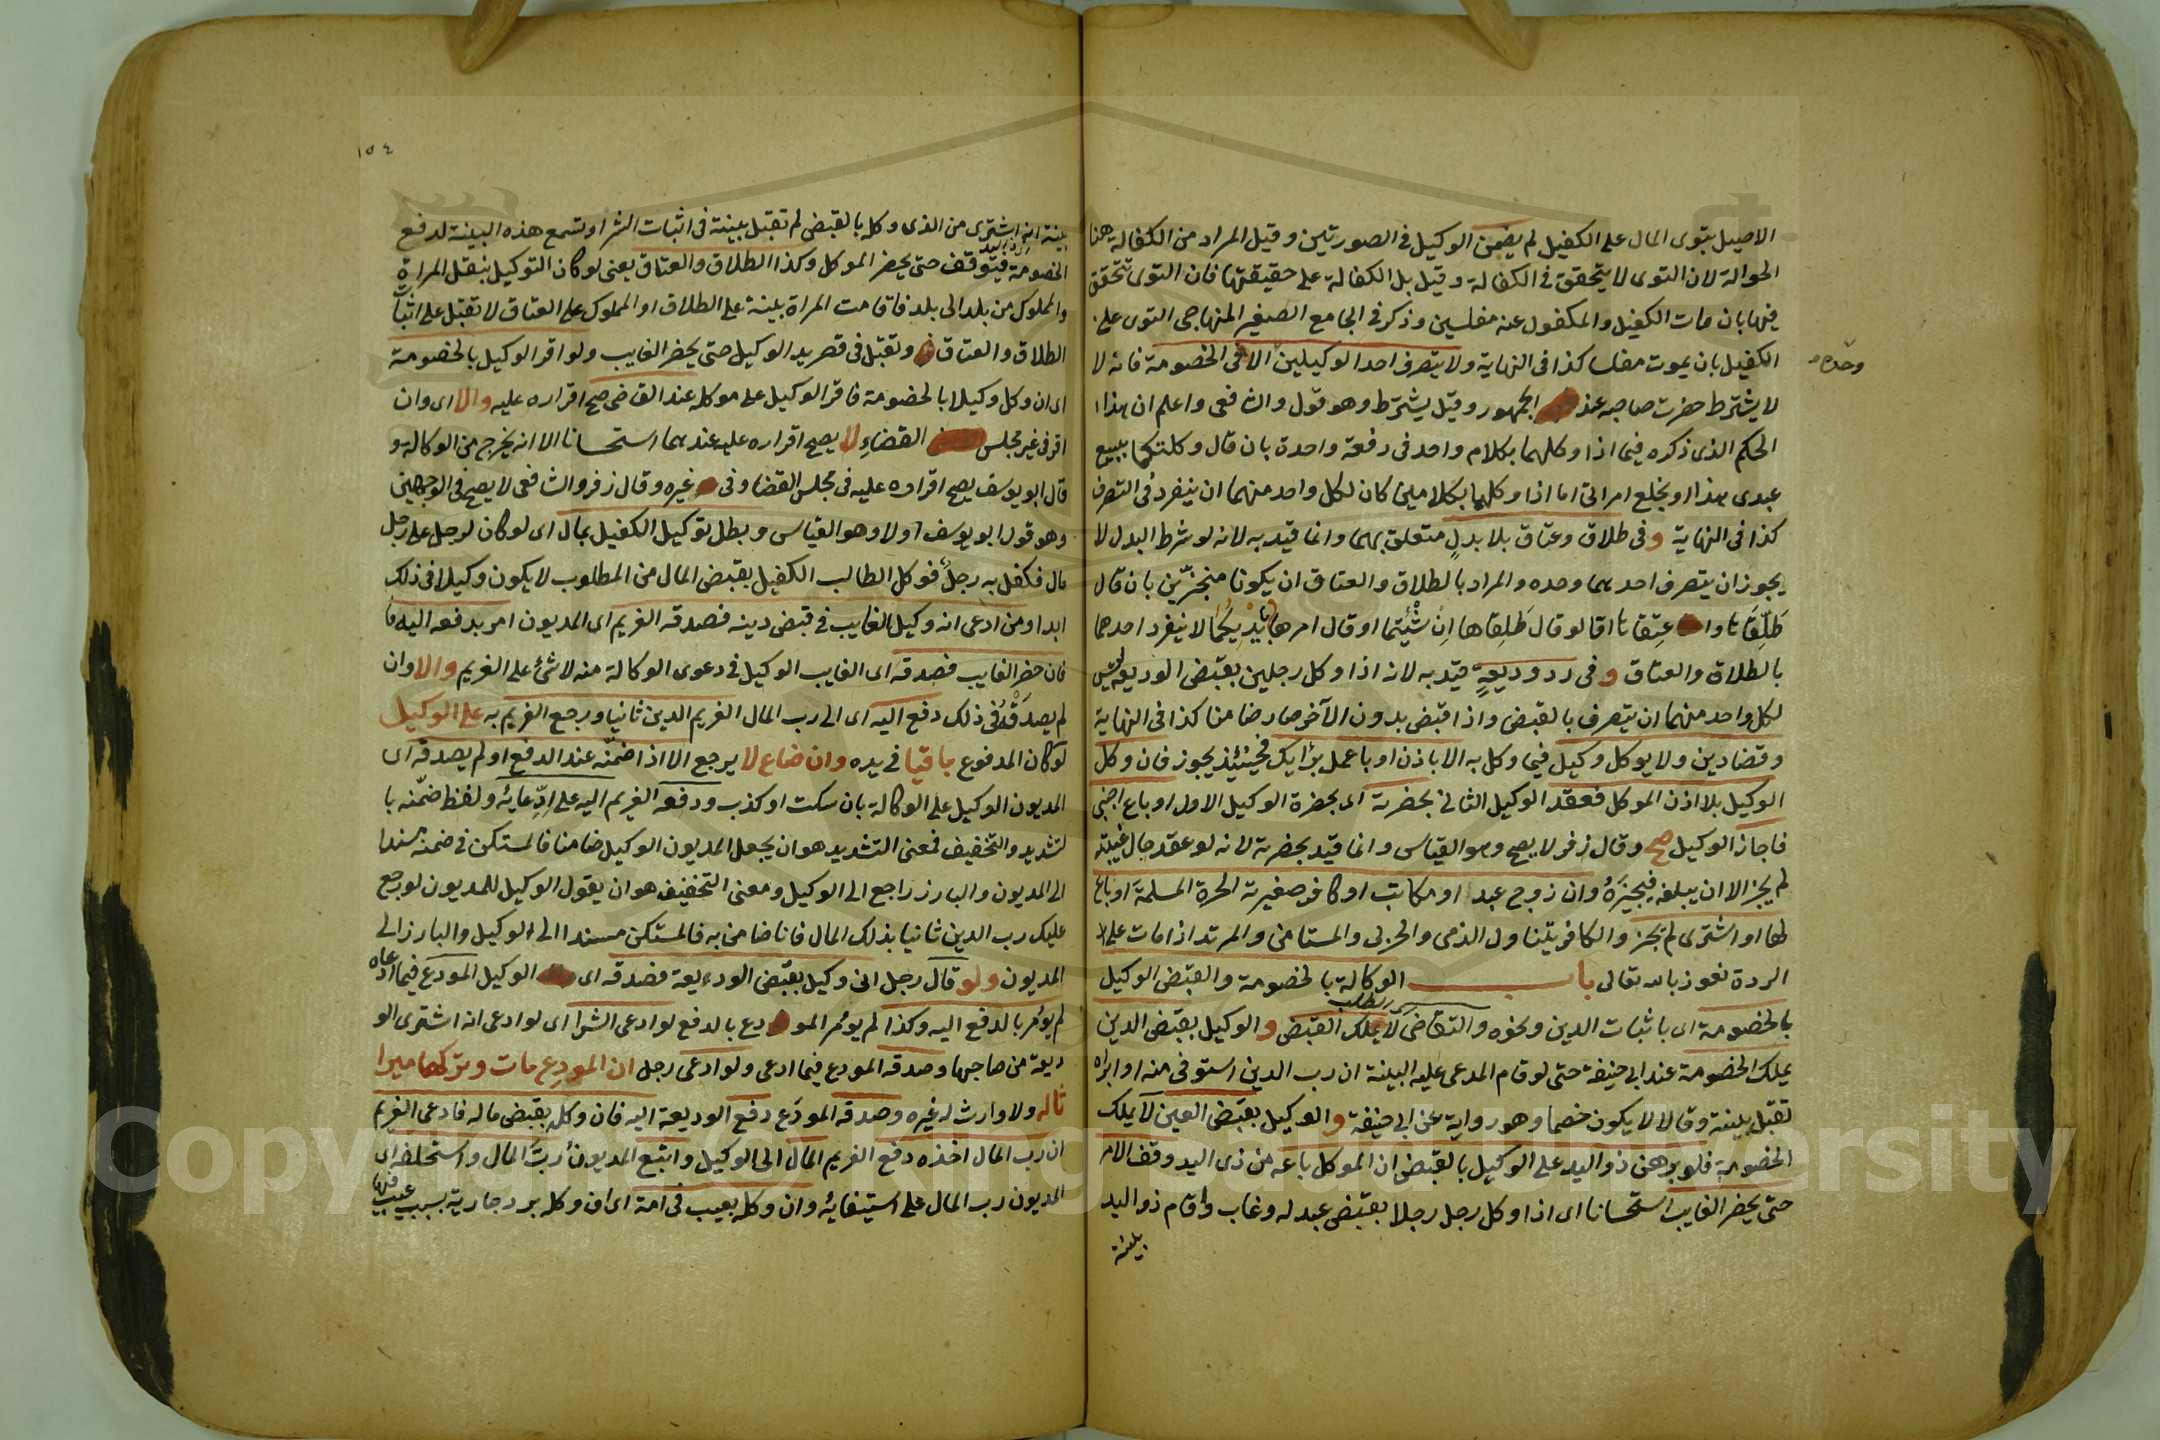 الاصيل بتوى المال على الكفيل لم يضمن الوكيل في الصورتين وقيل المراد من الكفالة هنا
الحوالة لان التوى لا يتحقق في الكفالة وقيل بل الكفالة على حقيقتها فان التوى يتحقق
فيها بان مات الكفيل والمكفول عنه مفلسين وذكر في الجامع الصغير المنهاجي التوى على
الكفيل بان يموت مفلسا كذا في النهاية ولا يتصرف احد الوكيلين الا في الخصومة فانه لا
وحده
لا يشترط حضرت صاحبه عند الجمهور وقيل يشترط وهو قول والشافعي واعلم ان هذا
الحكم الذى ذكره فيما اذا وكلهما بكلام واحد في دفعة واحدة بان قال وكلتكما ببيع
عبدى هذا او بخلع امراتى اما اذا وكلهما بكلامين كان لكل واحد منهما ان ينفرد في التصرف
كذا في النهاية وفى طلاق وعتاق بلا بدل متعلق بهما وانما قيد به لانه لو شرط البدل لا
يجوز ان يتصرف احدهما وحده والمراد بالطلاق والعتاق ان يكونا منجزين بان قال
طلقاها او اعتقاها اما لو قال طلقاها ان شئتما او قال امرها بايديكما لا ينفرد احدهما
بالطلاق والعتاق وفى رد وديعة قيد به لانه اذا وكل رجلين بقبض الوديعة ليس
لكل واحد منهما ان يتصرف بالقبض واذا قبض بدون الآخر صار ضامنا كذا في النهاية
وقضا دين ولا يوكل وكيل فيما وكل به الا باذن او باعمل برأيك فحينئذ يجوز فان وكل
الوكيل بلا اذن الموكل فعقد الوكيل الثاني بحضرته اى بحضرة الوكيل الاول او باع اجنبى
فاجاز الوكيل صح وقال زفر لا يصح وهو القياس وانما قيد بحضرته لانه لو عقد حال غيبته
لم يجز الا ان يبلغه فيجيزه وان زوج عبد او مكاتب او كافر صغيرته الحرة المسلمة او باع
لها او اشترى لم يجز والكافر يتناول الذمى والحربى والمستامن والمرتد اذا مات على
الردة نعوذ بالله تعالى باب الوكالة بالخصومة والقبض الوكيل
بالخصومة اى باثبات الدين ونحوه والتقاضى لا يملك القبض والوكيل بقبض الدين
يملك الخصومة عند ابى حنيفة حتى لو قام المدعى عليه البينة ان رب الدين استوفى منه او ابراه
تقبل بينته وقالا لا يكون خصما وهو رواية عن ابى حنيفة والوكيل بقبض العين لا يملك
الخصومة فلو برهن ذو اليد على الوكيل بالقبض ان الموكل باعه من ذى اليد وقف الامر
حتى يحضر الغايب استحسانا اى اذا وكل رجل رجلا بقبض عبد له وغاب واقام ذو اليد
بينة
١٥٤
بينة انه اشترى من الذى وكله بالقبض لم تقبل بينة في اثبات الشراء وتسمع هذه البينة لدفع
الخصومة فيتوقف حتى يحضر الموكل وكذا الطلاق والعتاق يعنى لو كان التوكيل بنقل المراة
والمملوك من بلد الى بلد فاقامت المراة بينة على الطلاق او المملوك على العتاق لا تقبل على اثبات
الطلاق والعتاق وتقبل في قصر يد الوكيل حتى يحضر الغايب ولو اقر الوكيل بالخصومة
اى ان وكل وكيلا بالخصومة فاقر الوكيل على موكله عند القاضى صح اقراره عليه والا اى وان
اقر في غير مجلس القضاء لا يصح اقراره عليه عندهما استحسانا الا انه يخرج من الوكالة و
قال ابو يوسف يصح اقراره عليه في مجلس القضا وفى غيره وقال زفر والشافعى لا يصح في الوجهين
وهو قول ابو يوسف اولا وهو القياس وبطل توكيل الكفيل بمال اى لو كان لرجل على رجل
مال فكفل به رجل فوكل الطالب الكفيل بقبض المال من المطلوب لا يكون وكيلا في ذلك
ابدا ومن ادعى انه وكيل الغايب في قبض دينه فصدقه الغريم اى المديون امر بدفعه اليه
فان حضر الغايب فصدقه اى الغايب الوكيل في دعوى الوكالة منه لا شئ على الغريم والا وان
لم يصدقه في ذلك دفع اليه اى الى رب المال الغريم الدين ثانيا ورجع الغريم به على الوكيل
لو كان المدفوع باقيا في يده وان ضاع لا يرجع الا اذا ضمنه عند الدفع او لم يصدقه اى
المديون الوكيل على الوكالة بان سكت او كذب ودفعه الغريم اليه على ادعايه ولفظ ضمنه با
لتشديد والتخفيف فمعنى التشديد هو ان يجعل المديون الوكيل ضامنا فالمستكن في ضمنه مسندا
الى المديون والبارز راجع الى الوكيل ومعنى التخفيف هو ان يقول الوكيل للمديون لو رجع
عليك رب الدين ثانيا بذلك المال فانا ضامن به فالمستكن مسندا الى الوكيل والبارز الى
المديون ولو قال رجل انى وكيل بقبض الوديعة فصدقه اى الوكيل المودع فيما ادعاه
لم يؤمر بالدفع اليه وكذا لم يؤمر المودع بالدفع لو ادعى الشرا اى لو ادعى انه اشترى الو
ديعة من صاحبها وصدقه المودع فيما ادعى ولو ادعى رجل ان المودع مات وتركها ميرا
ثا له ولا وارث له غيره وصدقه المودع دفع الوديعة اليه فان وكله بقبض ماله فادعى الغريم
ان رب المال اخذه دفع الغريم المال الى الوكيل واتبع المديون رب المال واستحلفه اى
المديون رب المال على استيفائه وان وكله بعيب في امة اى ان وكله برد جارية بسبب عيب فيها